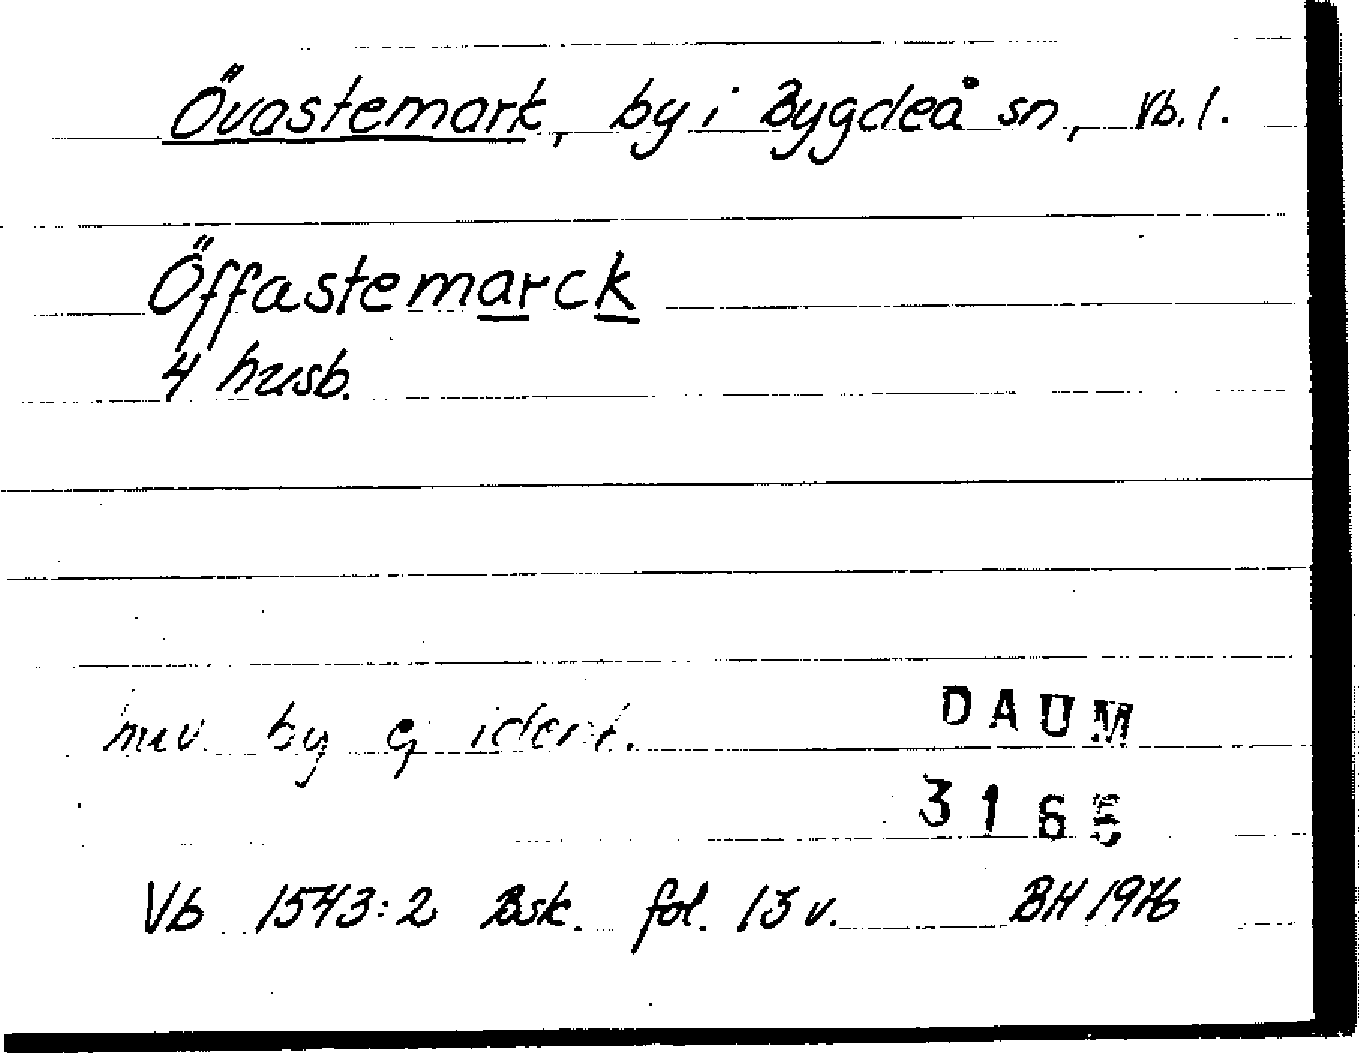 Övastemark, by i Bygdeå sn, Vb. l.
Öffastemarck
4 husb.
nuv. by ej ident.
DAUM
3165
Vb 1543:2 Bsk. fol. 13 v. BH 1976